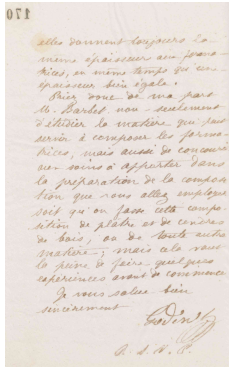 elles donnent toujours la
même épaisseur aux forma-
trices, en même temps qu'une
épaisseur bien égale.
Priez donc de ma part
M. Barbet non seulement
d'étudier la matière qui peut
servir à composer les forma-
trices, mais aussi de
aux soins à apporter dans
la préparation de la composi-
tion que vous allez employer
soit qu'on fasse cette compo-
sition de plâtre et de cendres
de bois, ou de toute autre
matière ; mais cela vaut
la peine de faire quelques
expériences avant de commencer
Je vous salue bien
sincèrement
Godin